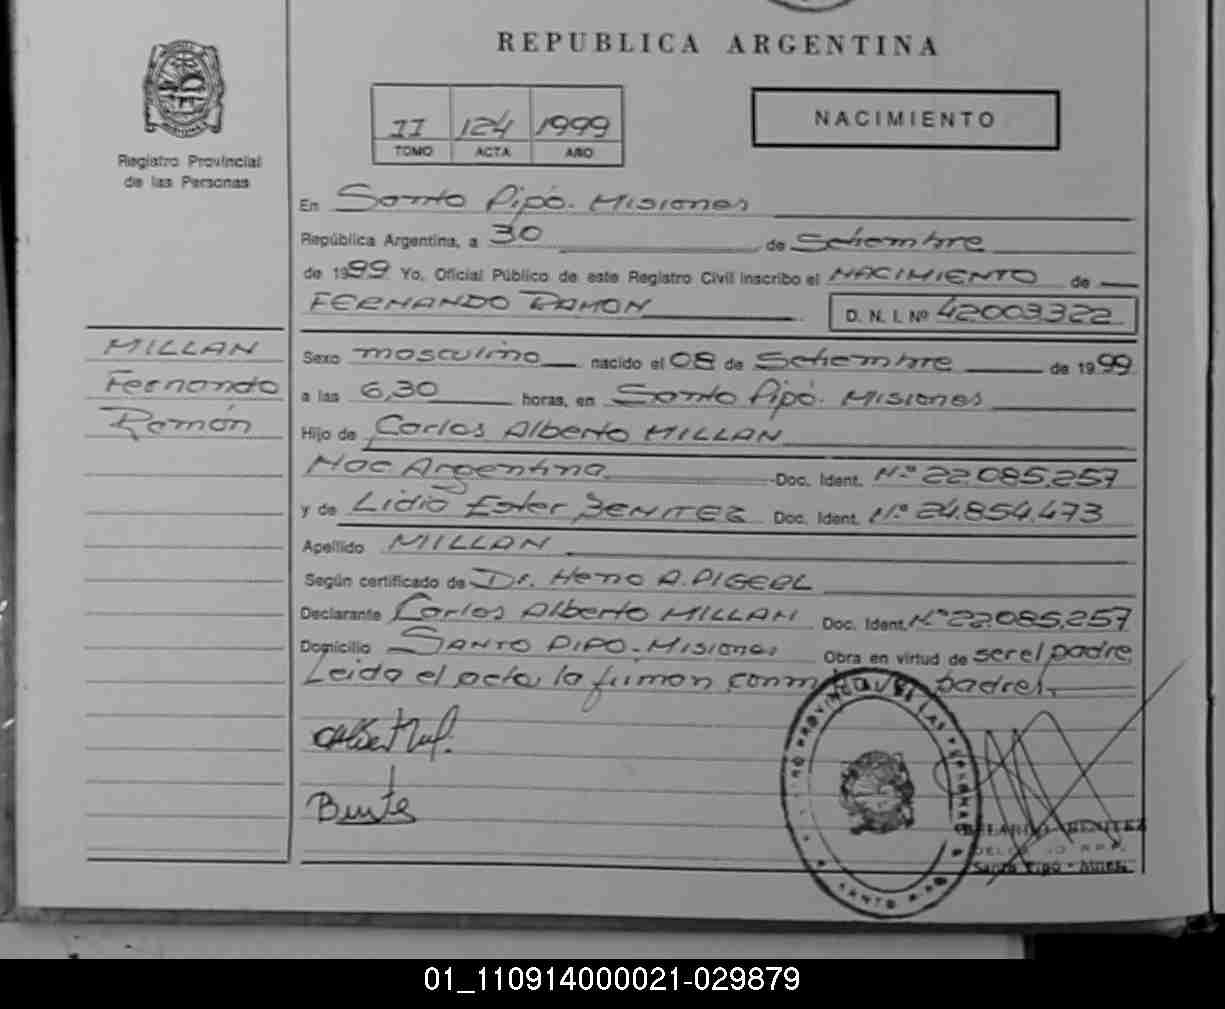 REPUBLICA ARGENTINA
MISIONES
Registro Provincial
de las Personas
II 124 1999
TOMO ACTA AÑO
NACIMIENTO
En Santo Pipó. Misiones
República Argentina, a 30 de Setiembre
de 1999 Yo, Oficial Público de este Registro Civil inscribo el NACIMIENTO de
FERNANDO RAMON D. N. I. Nº 42003322
MILLAN
Fernando
Ramón
Sexo masculino nacido el 08 de Setiembre de 1999
a las 6,30 horas, en Santo Pipó. Misiones
Hijo de Carlos Alberto MILLAN
Nac Argentina. Doc. Ident. Nº 22.085.257
y de Lidia Ester BENITEZ Doc. Ident. Nº 24.854.473
Apellido MILLAN
Según certificado de Dr. A. PIGERL
Declarante Carlos Alberto MILLAN Doc. Ident. Nº 22.085.257
Domicilio SANTO PIPO. Misiones Obra en virtud de ser el padre
Leida el acta, la firman padres.
SANTO PIPO
BENITEZ
Santo Pipó - Mnes.
01_110914000021-029879